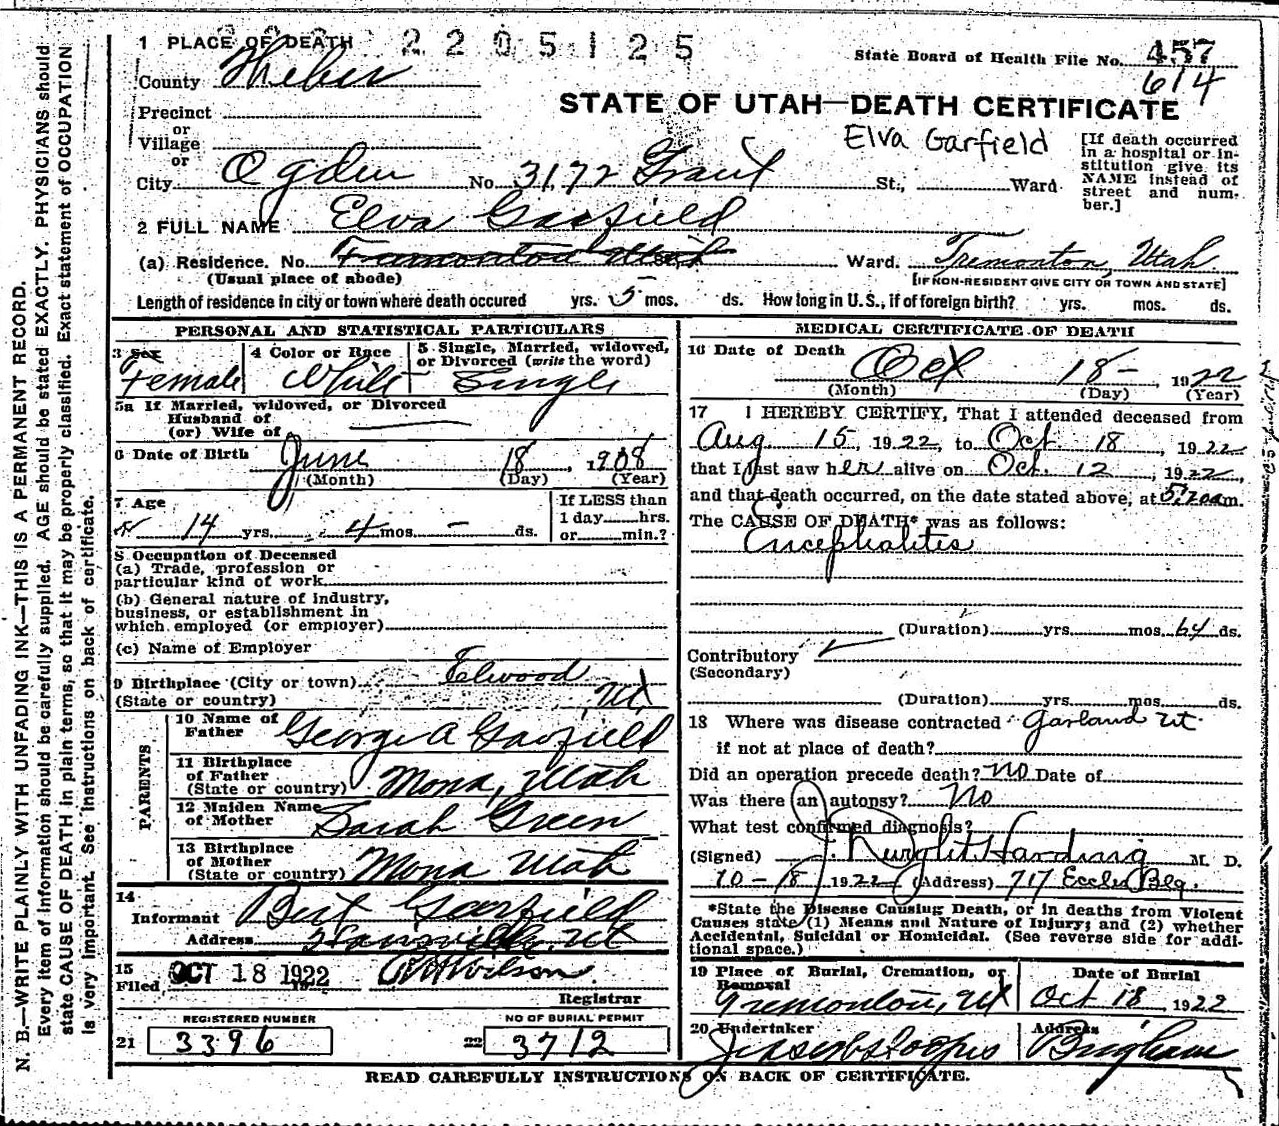 1 PLACE OF DEATH 2205125
State Board of Health File No. 457
614
County Weber
STATE OF UTAH—DEATH CERTIFICATE
Precinct
or
Village
or
Elva Garfield
[If death occurred in a hospital or institution give its NAME instead of street and number.]
City Ogden No. 3172 Grant St., Ward
2 FULL NAME Elva Garfield
(a) Residence. No. Tremonton Utah Ward. Tremonton, Utah
(Usual place of abode) [IF NON-RESIDENT GIVE CITY OR TOWN AND STATE]
Length of residence in city or town where death occured yrs. 5 mos. ds. How long in U.S., if of foreign birth? yrs. mos. ds.
PERSONAL AND STATISTICAL PARTICULARS
3 Sex Female
4 Color or Race White
5 Single, Married, widowed, or Divorced (write the word) Single
5a If Married, widowed, or Divorced
Husband of
(or) Wife of
6 Date of Birth June 18, 1908
(Month) (Day) (Year)
7 Age 14 yrs. 4 mos. – ds.
If LESS than
1 day hrs.
or min.?
8 Occupation of Deceased
(a) Trade, profession or
particular kind of work
(b) General nature of industry,
business, or establishment in
which employed (or employer)
(c) Name of Employer
9 Birthplace (City or town) Elwood
(State or country) Ut
PARENTS
10 Name of Father George A Garfield
11 Birthplace of Father (State or country) Mona, Utah
12 Maiden Name of Mother Sarah Green
13 Birthplace of Mother (State or country) Mona Utah
14
Informant Bert Garfield
Address Ut
15 Filed OCT 18 1922 Wilson
Registrar
REGISTERED NUMBER
21 3396
NO OF BURIAL PERMIT
22 3712
MEDICAL CERTIFICATE OF DEATH
16 Date of Death Oct 18 – 1922
(Month) (Day) (Year)
17 I HEREBY CERTIFY, That I attended deceased from
Aug 15 1922, to Oct 18, 1922
that I last saw her alive on Oct. 12, 1922,
and that death occurred, on the date stated above, at 5:20 am.
The CAUSE OF DEATH* was as follows:
Encephalites
(Duration) yrs. mos. 64 ds.
Contributory
(Secondary)
(Duration) yrs. mos. ds.
18 Where was disease contracted Garland Ut.
if not at place of death?
Did an operation precede death? No Date of
Was there an autopsy? No
What test confirmed diagnosis?
(Signed) J. Dwight Harding M. D.
10–18, 1922 (Address) 717 Eccles Blg.
*State the Disease Causing Death, or in deaths from Violent
Causes state (1) Means and Nature of Injury; and (2) whether
Accidental, Suicidal or Homicidal. (See reverse side for additional space.)
19 Place of Burial, Cremation, or Removal
Tremonton, Ut
Date of Burial
Oct 18, 1922
20 Undertaker
Address
Brigham
READ CAREFULLY INSTRUCTIONS ON BACK OF CERTIFICATE.
N. B.—WRITE PLAINLY WITH UNFADING INK—THIS IS A PERMANENT RECORD.
Every item of information should be carefully supplied. AGE should be stated EXACTLY. PHYSICIANS should
state CAUSE OF DEATH in plain terms, so that it may be properly classified. Exact statement of OCCUPATION
is very important. See instructions on back of certificate.